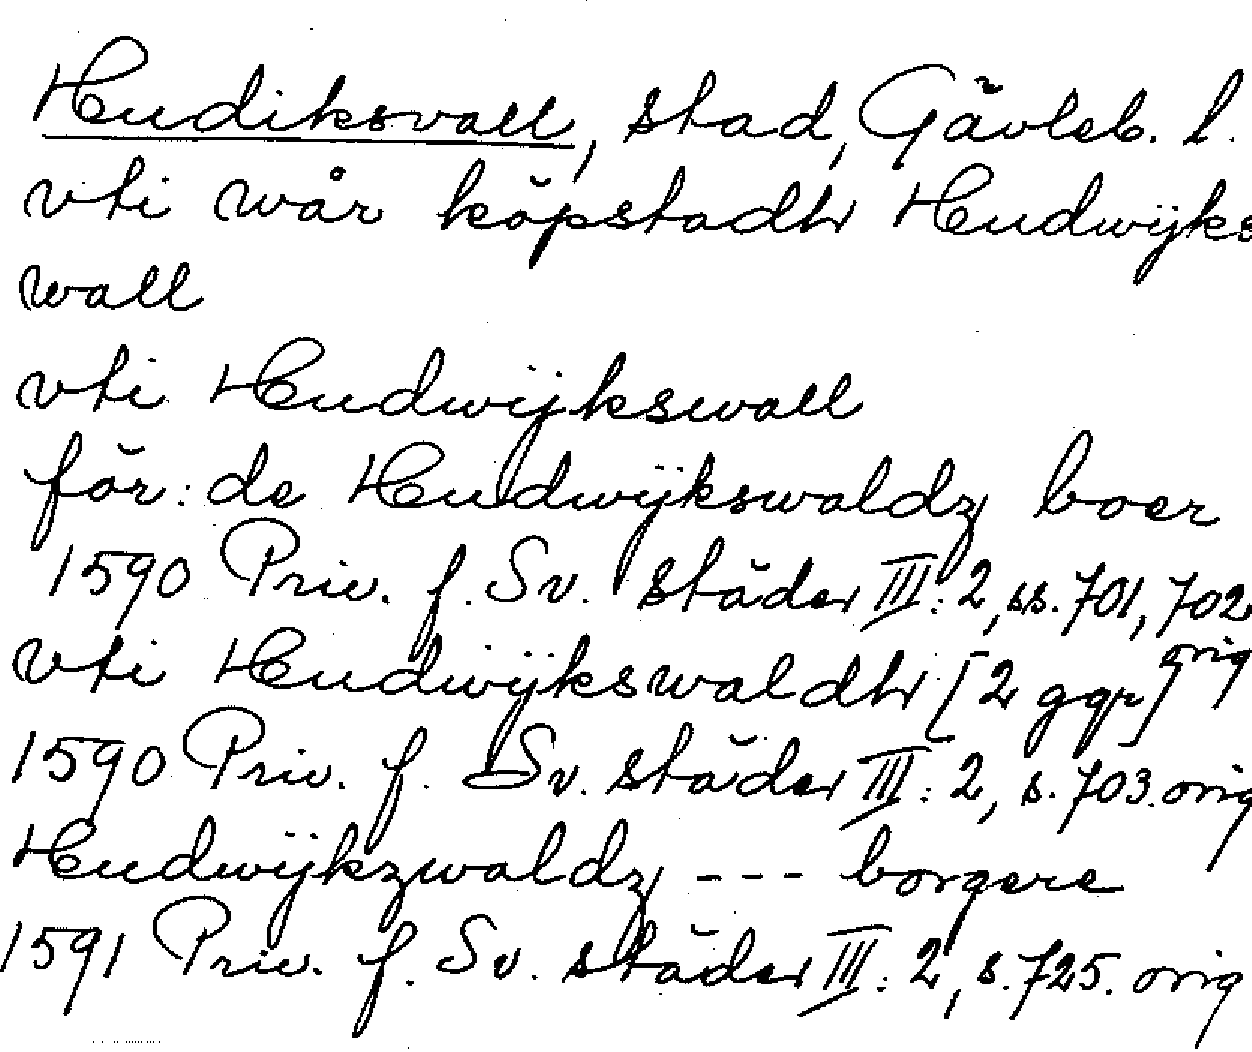 Hudiksvall, stad, Gävleb. l.
vti wår köpstadh Hudwijks
wall
vti Hudwijkswall
för: de Hudwijkswaldz boer
1590 Priv. f. Sv. städer III: 2, ss. 701, 702 orig
vti Hudwijkswaldh [2 ggr]
1590 Priv. f. Sv. städer III: 2, s. 703. orig
Hudwijkzwaldz --- borgere
1591 Priv. f. Sv. städer III: 2, s. 725. orig